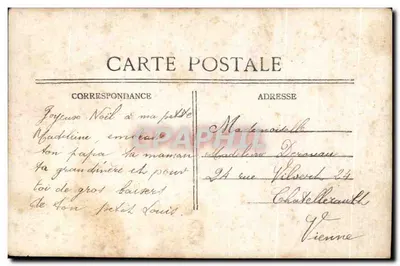 CARTE POSTALE
CORRESPONDANCE
Joyeuse Noël à ma petite
Madeleine embrasse
ton papa ta maman
ta grandmère et pour
toi de gros baisers
de ton petit Louis.
ADRESSE
Mademoiselle
Madeleine
24 rue 24
Chatellerault
Vienne